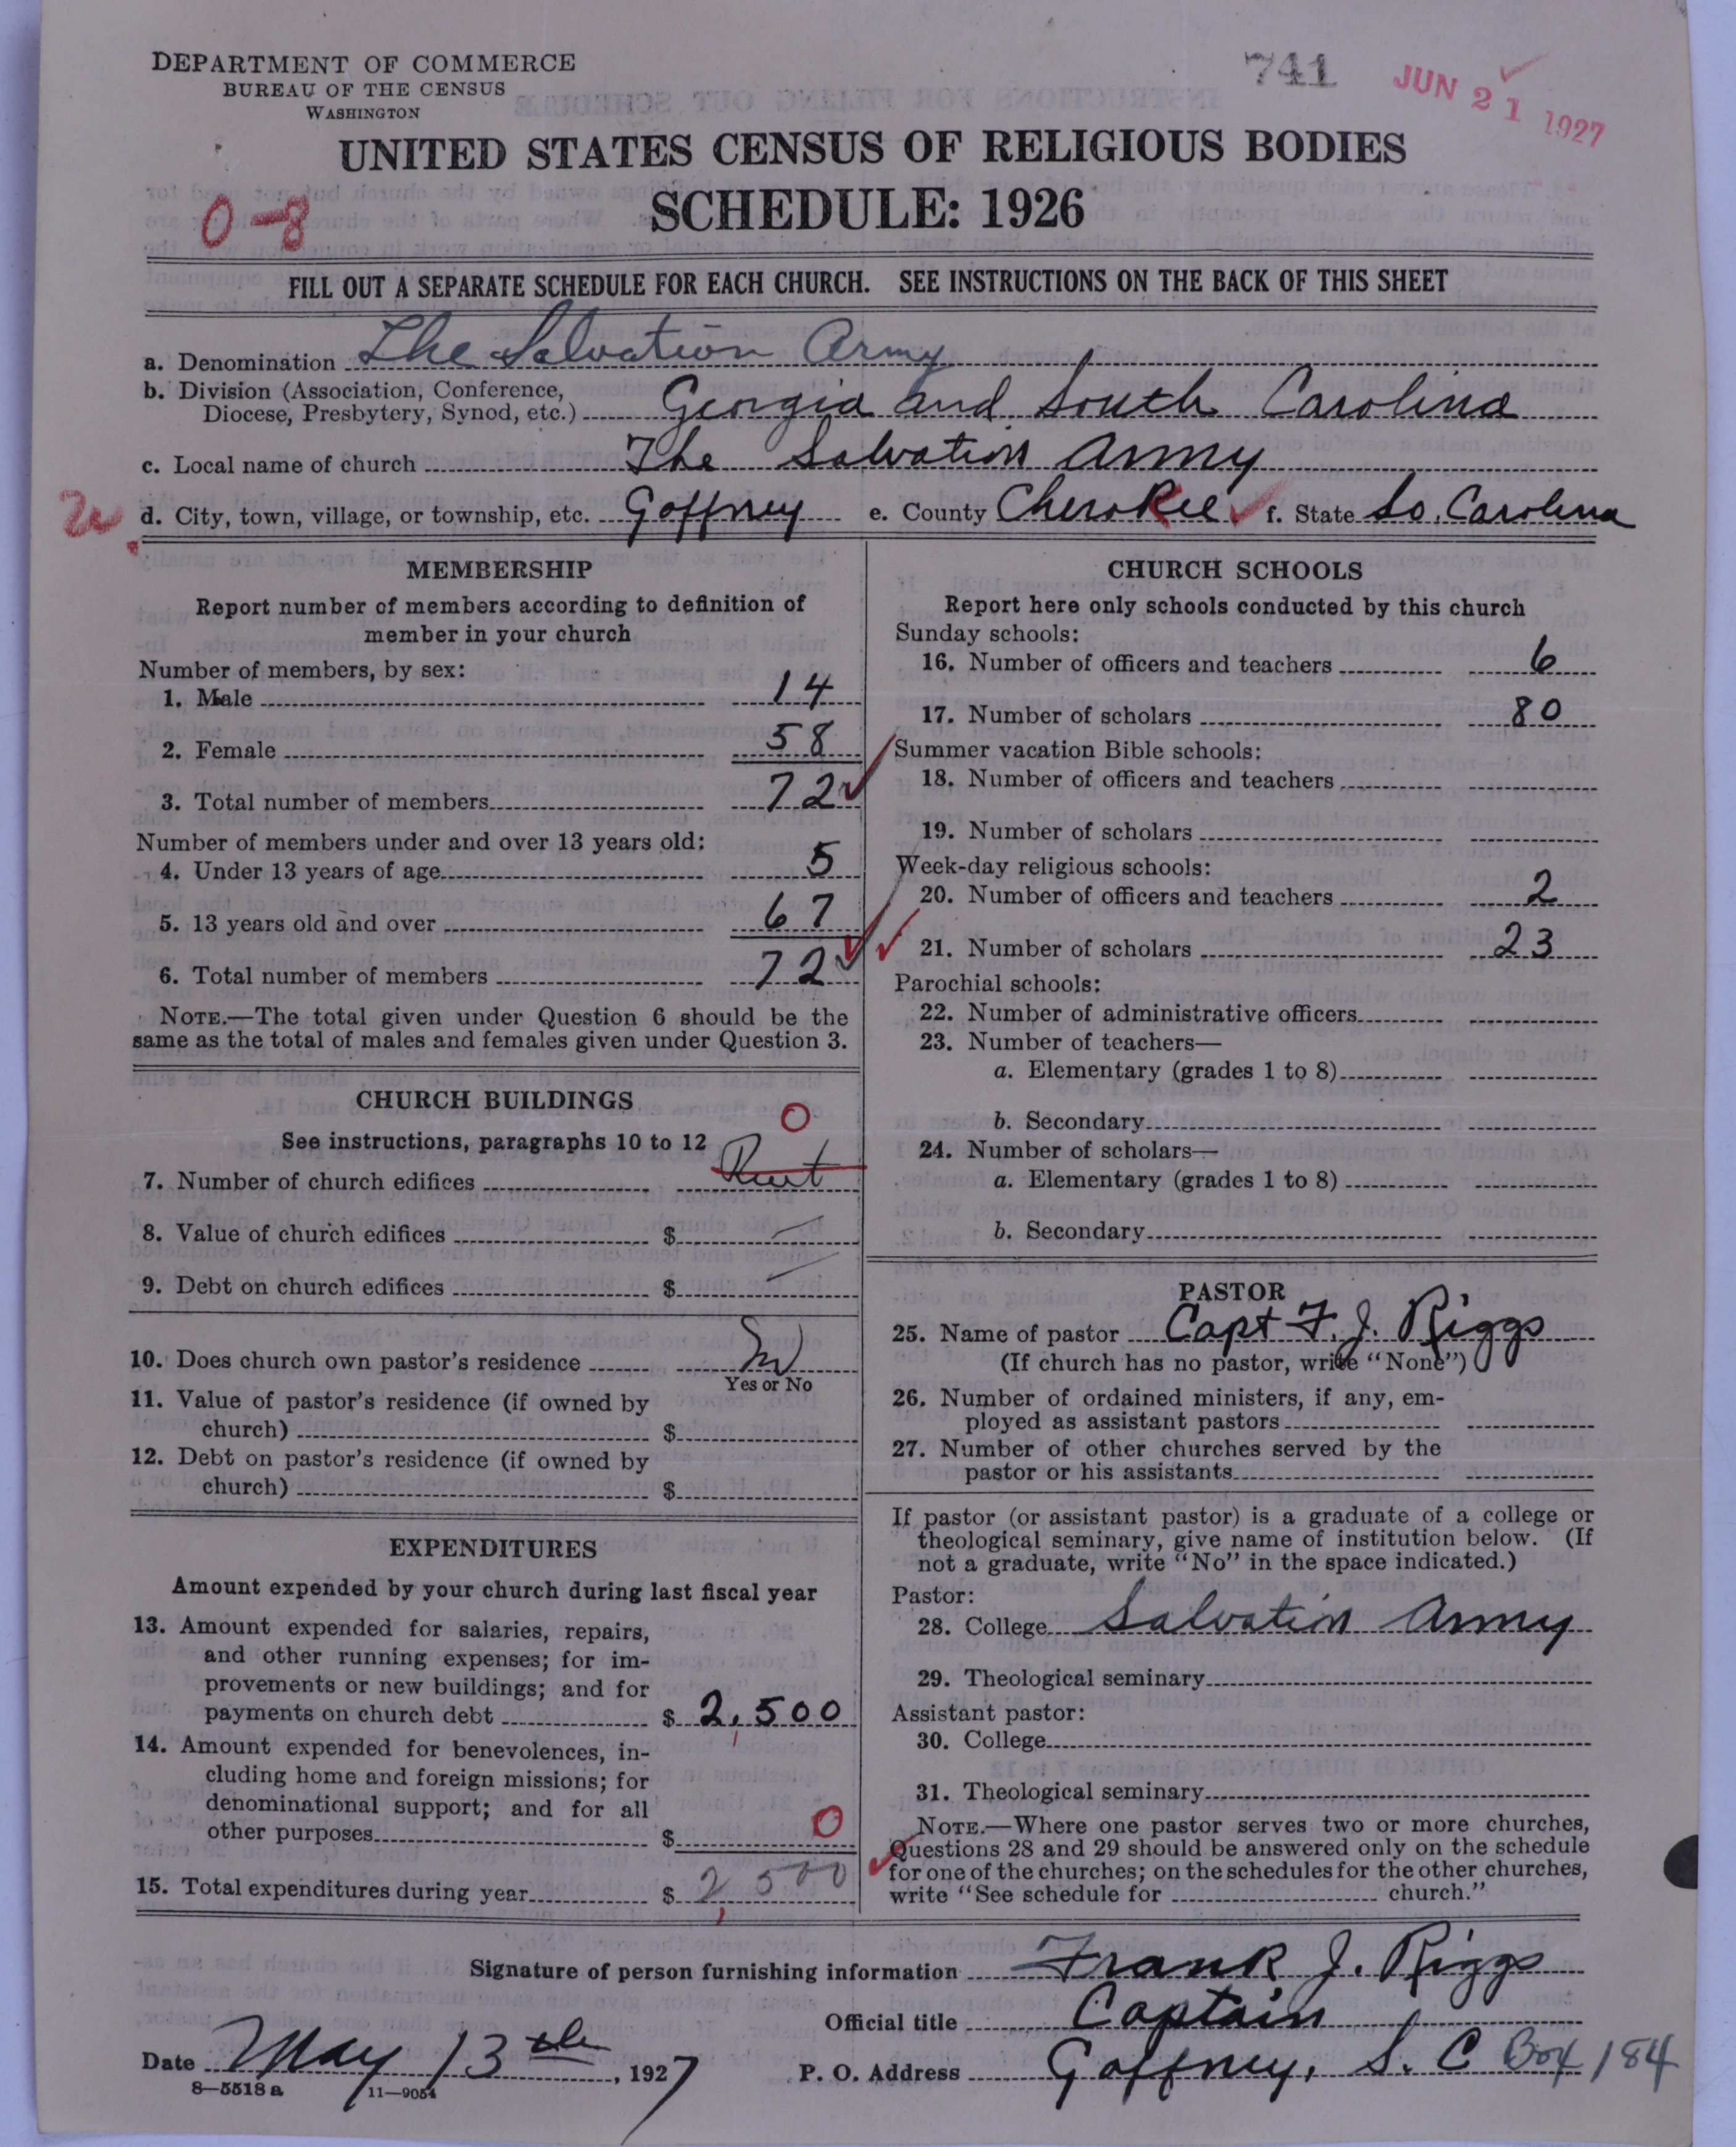 DEPARTMENT OF COMMERCE
BUREAU OF THE CENSUS
WASHINGTON
741
JUN 21 1927
UNITED STATES CENSUS OF RELIGIOUS BODIES
SCHEDULE: 1926
0-8
FILL OUT A SEPARATE SCHEDULE FOR EACH CHURCH. SEE INSTRUCTIONS ON THE BACK OF THIS SHEET
a. Denomination The Salvation Army
b. Division (Association, Conference,
Diocese, Presbytery, Synod, etc.) Georgia and South Carolina
c. Local name of church The Salvation Army
d. City, town, village, or township, etc. Gaffney e. County Cherokee f. State So. Carolina
MEMBERSHIP
Report number of members according to definition of
member in your church
Number of members, by sex:
1. Male 14
2. Female 58
3. Total number of members 72
Number of members under and over 13 years old:
4. Under 13 years of age 5
5. 13 years old and over 67
6. Total number of members 72
NOTE.—The total given under Question 6 should be the
same as the total of males and females given under Question 3.
CHURCH BUILDINGS
See instructions, paragraphs 10 to 12
0
7. Number of church edifices Rent
8. Value of church edifices $ —
9. Debt on church edifices $ —
10. Does church own pastor's residence
Yes or No
11. Value of pastor's residence (if owned by
church) $
12. Debt on pastor's residence (if owned by
church) $
EXPENDITURES
Amount expended by your church during last fiscal year
13. Amount expended for salaries, repairs,
and other running expenses; for im-
provements or new buildings; and for
payments on church debt $ 2,500
14. Amount expended for benevolences, in-
cluding home and foreign missions; for
denominational support; and for all
other purposes $ 0
15. Total expenditures during year $ 2,500
CHURCH SCHOOLS
Report here only schools conducted by this church
Sunday schools:
16. Number of officers and teachers 6
17. Number of scholars 80
Summer vacation Bible schools:
18. Number of officers and teachers
19. Number of scholars
Week-day religious schools:
20. Number of officers and teachers 2
21. Number of scholars 23
Parochial schools:
22. Number of administrative officers
23. Number of teachers—
a. Elementary (grades 1 to 8)
b. Secondary
24. Number of scholars—
a. Elementary (grades 1 to 8)
b. Secondary
PASTOR
25. Name of pastor Capt F. J. Riggs
(If church has no pastor, write "None")
26. Number of ordained ministers, if any, em-
ployed as assistant pastors
27. Number of other churches served by the
pastor or his assistants
If pastor (or assistant pastor) is a graduate of a college or
theological seminary, give name of institution below. (If
not a graduate, write "No" in the space indicated.)
Pastor:
28. College Salvation Army
29. Theological seminary
Assistant pastor:
30. College
31. Theological seminary
NOTE.—Where one pastor serves two or more churches,
Questions 28 and 29 should be answered only on the schedule
for one of the churches; on the schedules for the other churches,
write "See schedule for church."
Signature of person furnishing information Frank J. Riggs
Official title Captain
Date May 13th, 1927 P. O. Address Gaffney, S. C Box 184
8—5518a 11—9054